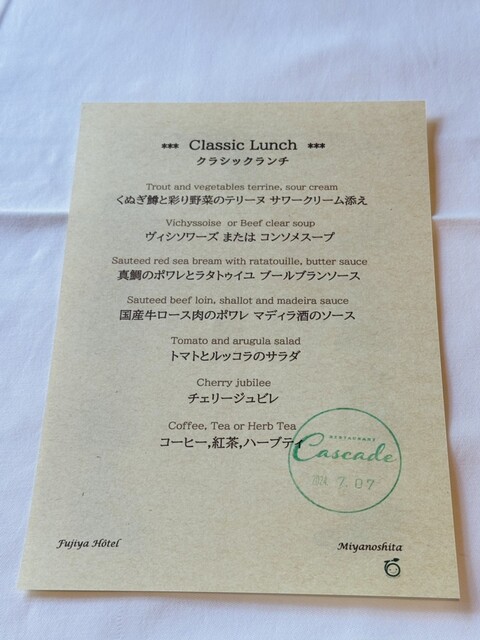 *** Classic Lunch ***
クラシックランチ
Trout and vegetables terrine, sour cream
くぬぎ鱒と彩り野菜のテリーヌ サワークリーム添え
Vichyssoise or Beef clear soup
ヴィシソワーズ または コンソメスープ
Sauteed red sea bream with ratatouille, butter sauce
真鯛のポワレとラタトゥイユ ブールブランソース
Sauteed beef loin, shallot and madeira sauce
国産牛ロース肉のポワレ マディラ酒のソース
Tomato and arugula salad
トマトとルッコラのサラダ
Cherry jubilee
チェリージュビレ
Coffee, Tea or Herb Tea
コーヒー,紅茶,ハーブティ
RESTAURANT
Cascade
2024 7.07
Fujiya Hôtel
Miyanoshita